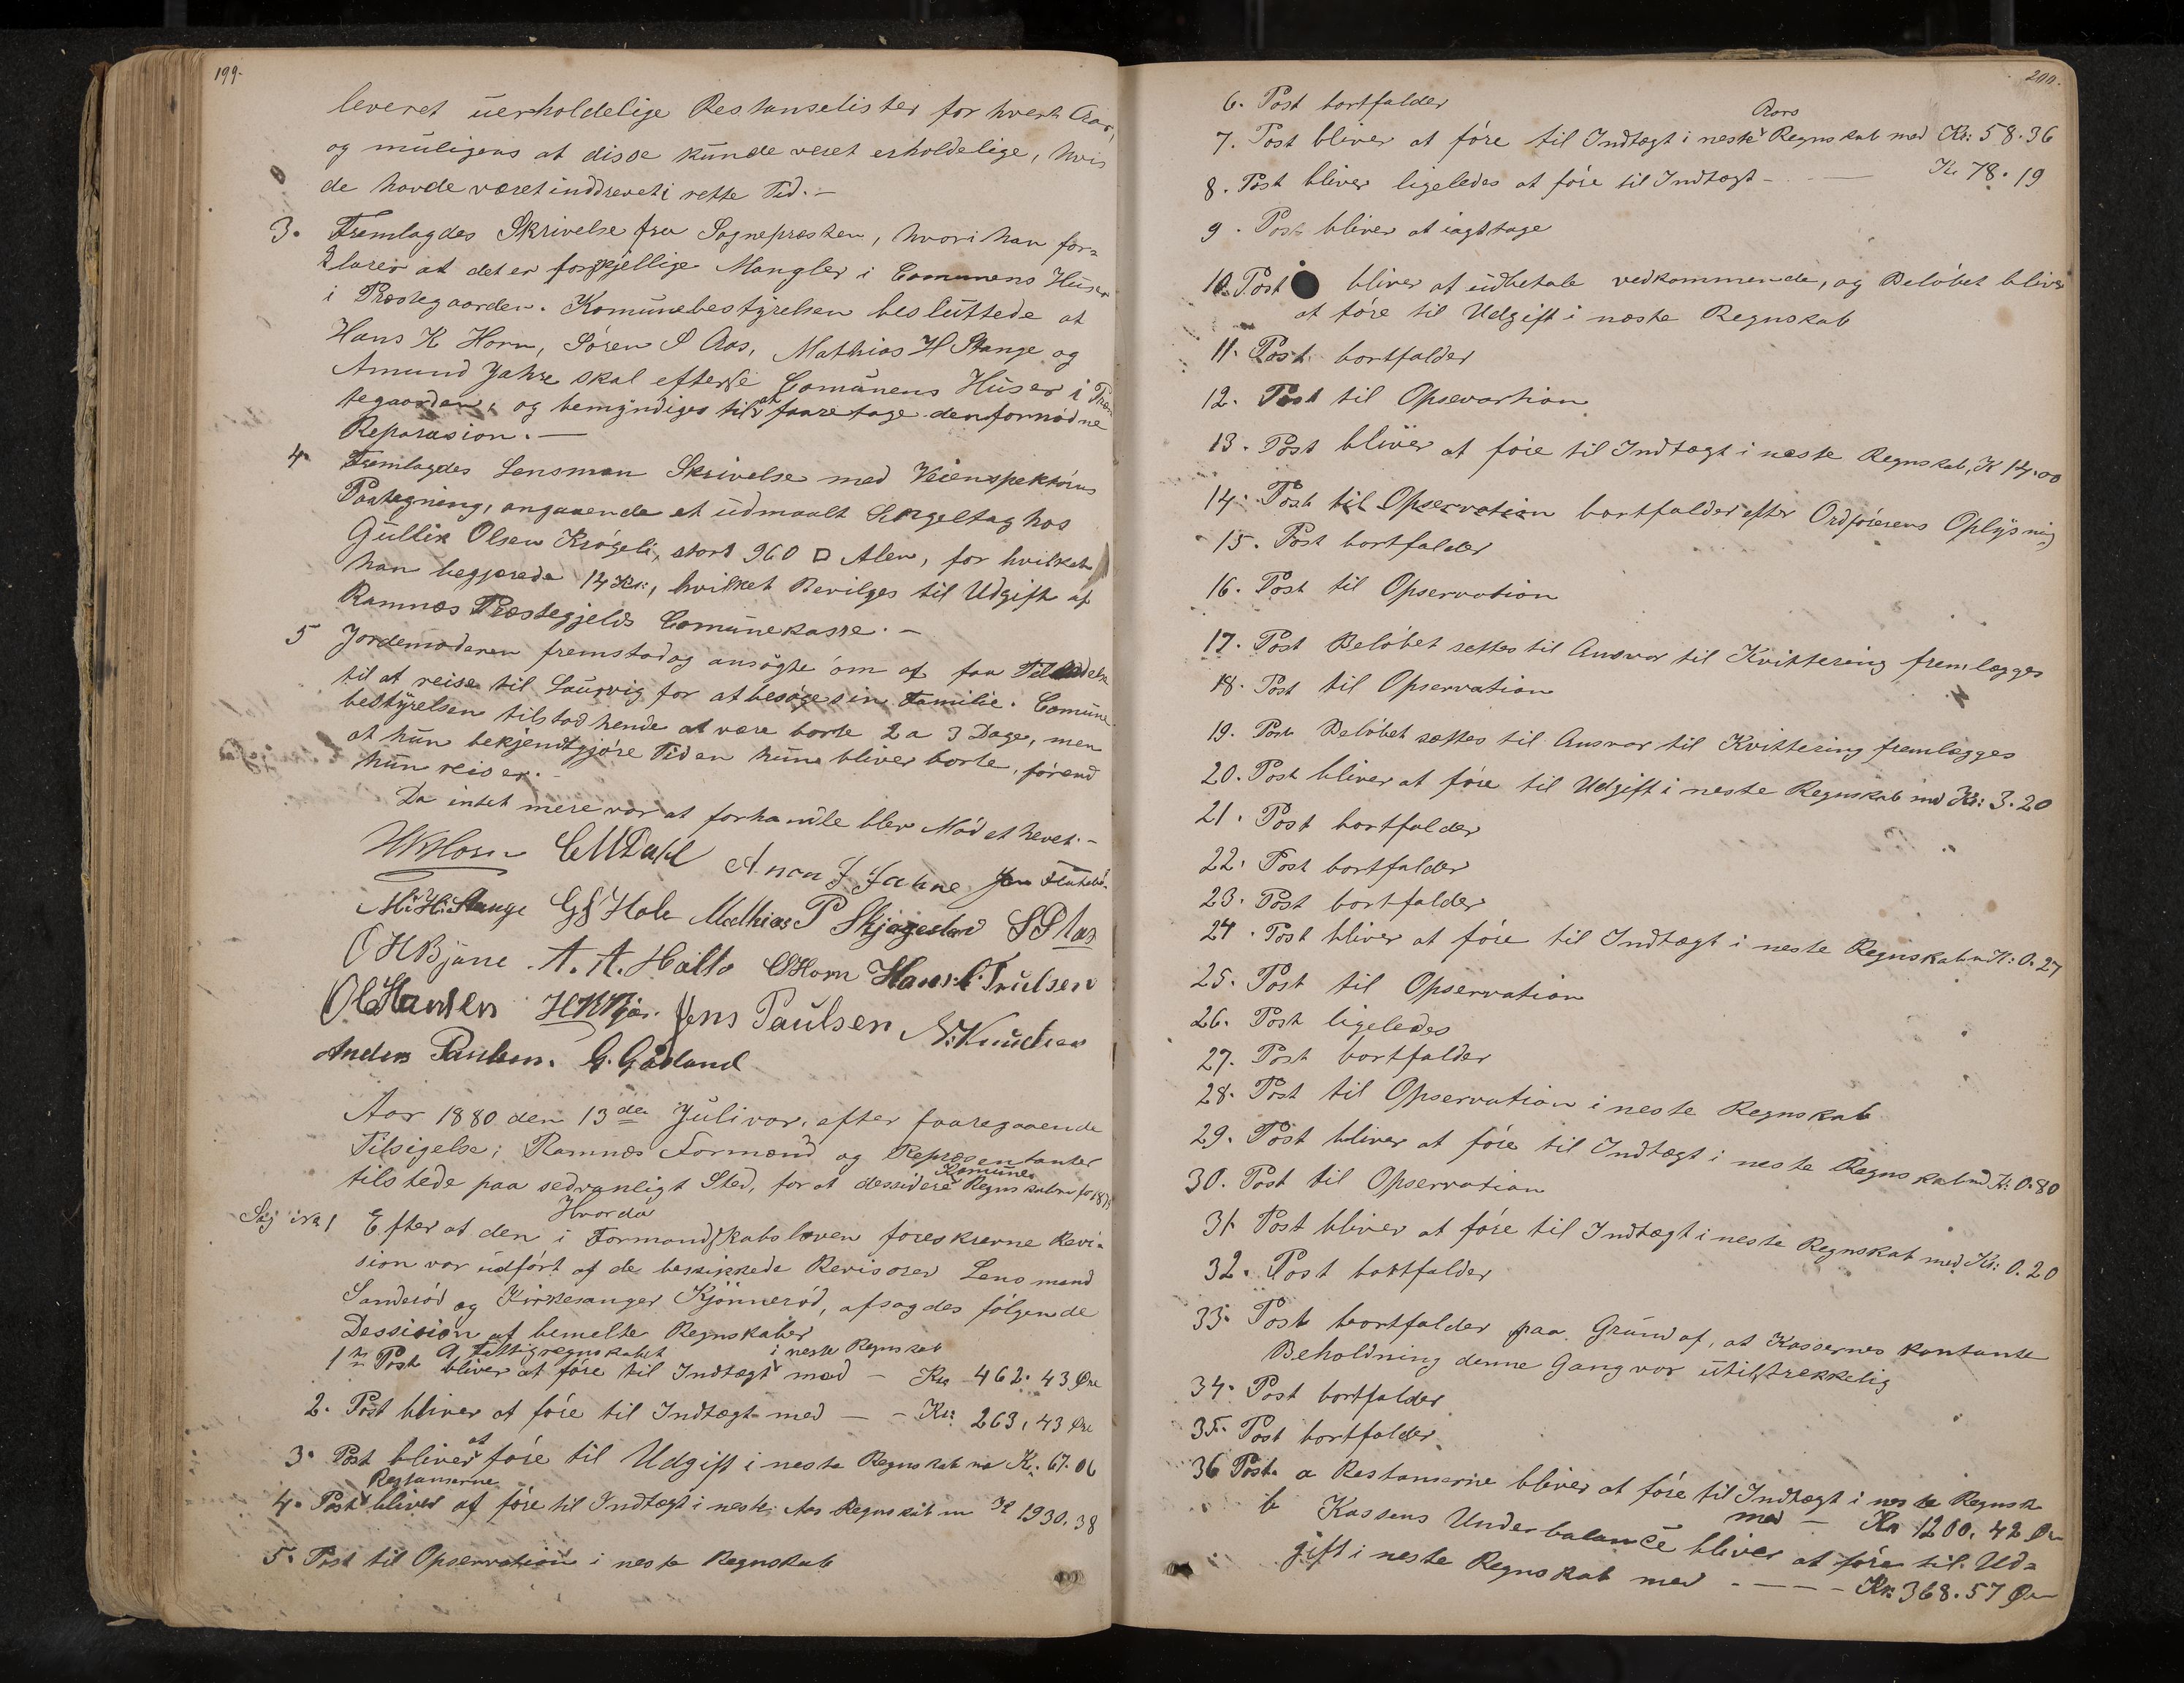 199.
leveret uerholdelige Restanselister for hvert Aar,
og muligens at disse kunde veret erholdelige, hvis
de havde været inddrevet i rette Tid. —
3. Fremlagdes Skrivelse fra Sognepræsten, hvori han for=
klarer at det er forskjellige Mangler i Comunens Huser
i Præstegaarden. Komunebestyrelsen besluttede at
Hans K Horn, Sören S Aas, Mathias H Stange og
Amund Jahre skal efterse Comunens Huser i Præs
tegaarden, og bemyndiges til at foaretage den fornödne
Reparasion. —
4. Fremlagdes Lensman Skrivelse med Veienspektörens
Paategning, angaaende et udmaalt Singeltag hos
Gullik Olsen Krögeli, stort 960 □ Alen, for hvilket
han begjærede 14 Kr., hvilket Bevilges til Udgift af
Ramnæs Præstegjelds Comunekasse. —
5 Jordemoderen fremstod og ansögte om at faa Tilladelse
til at reise til Laurvig for at besöge sin Familie. Comune
bestyrelsen tilstod hende at være borte 2 a 3 Dage, men
at hun bekjendtgjöre Tiden hun bliver borte, förend
hun reiser. —
Da intet mere var at forhandle blev Mödet hevet. —
HKHorn CMDahl A. J Jahre
M. H. Stange GS Hole Mathias P Skjeggestad SSAas
OHBjune A. A. Holto Horn Hans C. Trulsen
OC Hansen Jens Paulsen N. Knudsen
Anders Paulsen. G. Gåsland
Aar 1880 den 13de Juli var, efter foaregaaende
Tilsigelse, Ramnæs Formænd og Repræsentanter
tilstede paa sedvanligt Sted, for at dessidere Komune Regnskaberne for 1878
Sag No 1 Efter at den i Formandskabsloven foreskrevne Revi=
sion var udfört af de beskikkede Revisorer Lensmand
Sanderöd og Kirkesanger Kjönneröd, afsagdes fölgende
Dessision af bemelte Regnskaber
A, Fattigregnskabet
1te Post bliver at före til Indtægt i neste Regnskab med — Kr 462. 43 Øre
2. Post bliver at före til Indtægt med — - Kr: 263, 43 Øre
3. Post bliver at före til Udgift i neste Regnskab m Kr. 67. 06
4. Post Restanserne bliver at före til Indtægt i neste Aars Regnskab m Kr 1930. 38
5. Post til Opservation i neste Regnskab
200.
6. Post bortfalder
7. Post bliver at före til Indtægt i neste Aars Regnskab med Kr: 58. 36
8. Post bliver ligeledes at före til Indtægt - — K. 78. 19
9. Post bliver at iagttage
10. Post bliver at udbetale vedkommende, og Belöbet bliver
at före til Udgift i næste Regnskab
11. Post bortfalder
12. Post til Opsevartion
13. Post bliver at före til Indtægt i næste Regnskab, K 14.00
14. Post til Opservation bortfalder efter Ordförerens Oplysning
15. Post bortfalder
16. Post til Opservation
17. Post Belöbet settes til Ansvar til Kvittering fremlægges
18. Post til Opservation
19. Post Belöbet sættes til Ansvar til Kvittering fremlægges
20. Post bliver at före til Udgift i neste Regnskab med Kr: 3. 20
21. Post bortfalder
22. Post bortfalder
23. Post bortfalder
24. Post bliver at före til Indtægt i neste Regnskab m K: 0. 27
25. Post til Opservation
26. Post ligeledes
27. Post bortfalder
28. Post til Opservation i neste Regnskab
29. Post bliver at före til Indtægt i neste Regnskab md K: 0. 80
30. Post til Opservation
31. Post bliver at före til Indtægt i neste Regnskab med Kr: 0. 20
32. Post bortfalder
33. Post bortfalder paa Grund af, at Kassernes kontante
Beholdning denne Gang var utilstrekkelig
34. Post bortfalder
35. Post bortfalder
36 Post. a Restanserne bliver at före til Indtægt i neste Regnsk
med — Kr 1200. 42 Øre
b Kassens Underbalance bliver at före til Ud=
gift i neste Regnskab med - — — - Kr: 368. 57 Øre